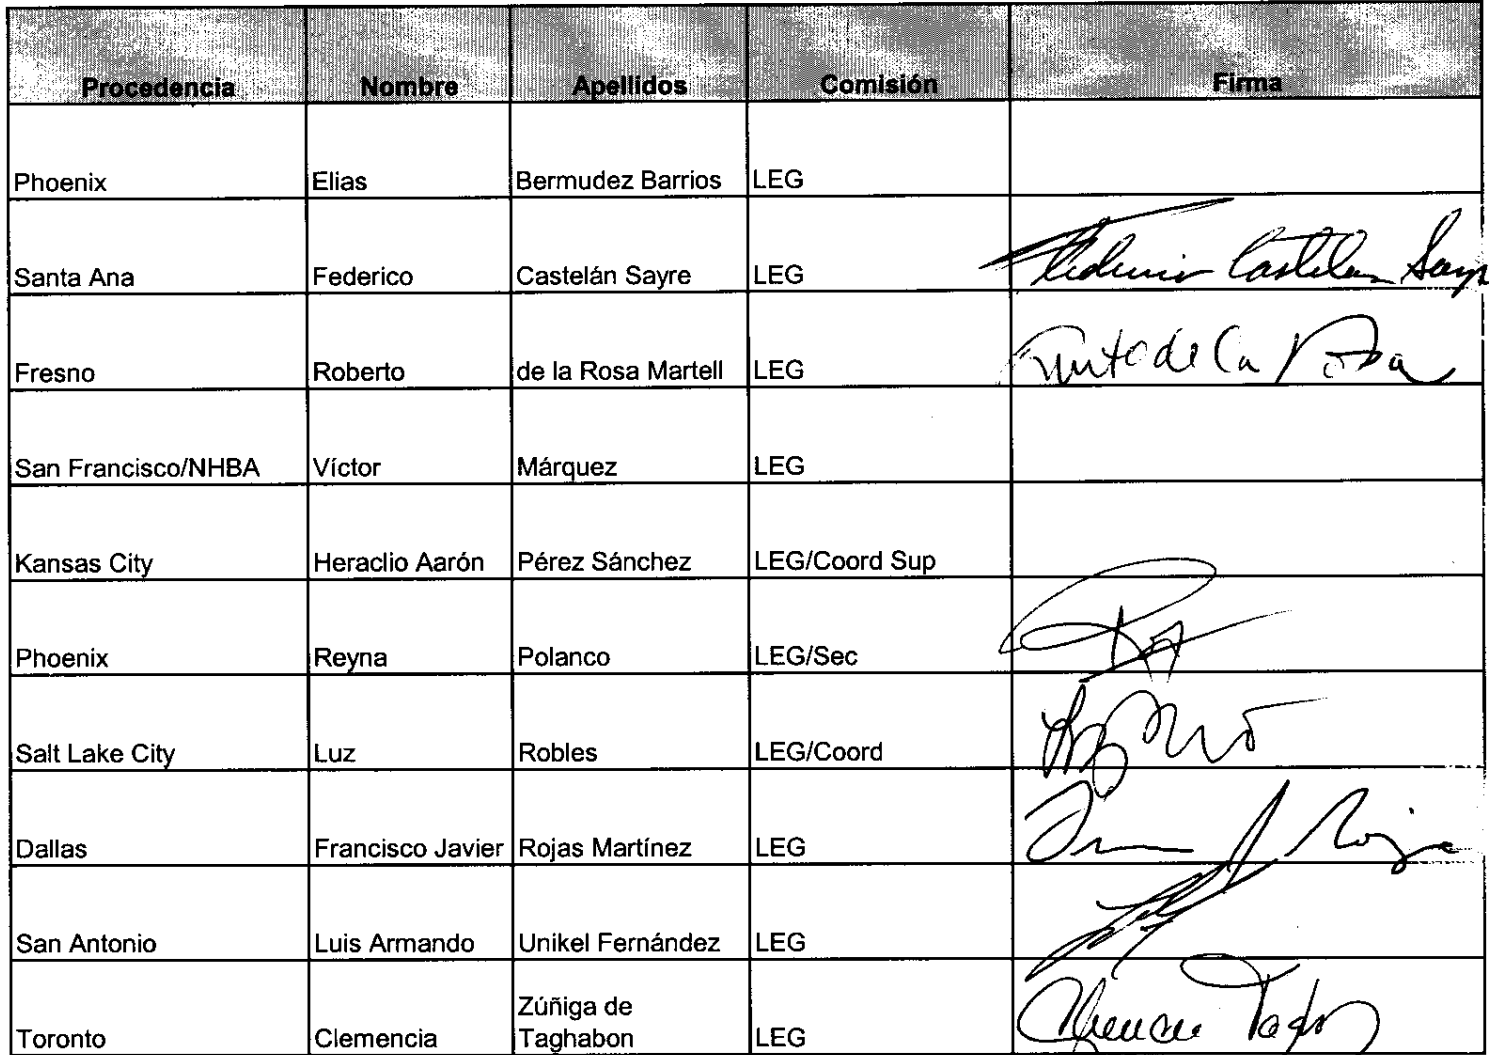 Procedencia Nombre Apellidos Comisión Firma
Phoenix Elias Bermudez Barrios LEG
Santa Ana Federico Castelán Sayre LEG Federico Castelan Sayr
Fresno Roberto de la Rosa Martell LEG de la Rosa
San Francisco/NHBA Víctor Márquez LEG
Kansas City Heraclio Aarón Pérez Sánchez LEG/Coord Sup
Phoenix Reyna Polanco LEG/Sec
Salt Lake City Luz Robles LEG/Coord
Dallas Francisco Javier Rojas Martínez LEG
San Antonio Luis Armando Unikel Fernández LEG
Zúñiga de
Toronto Clemencia Taghabon LEG